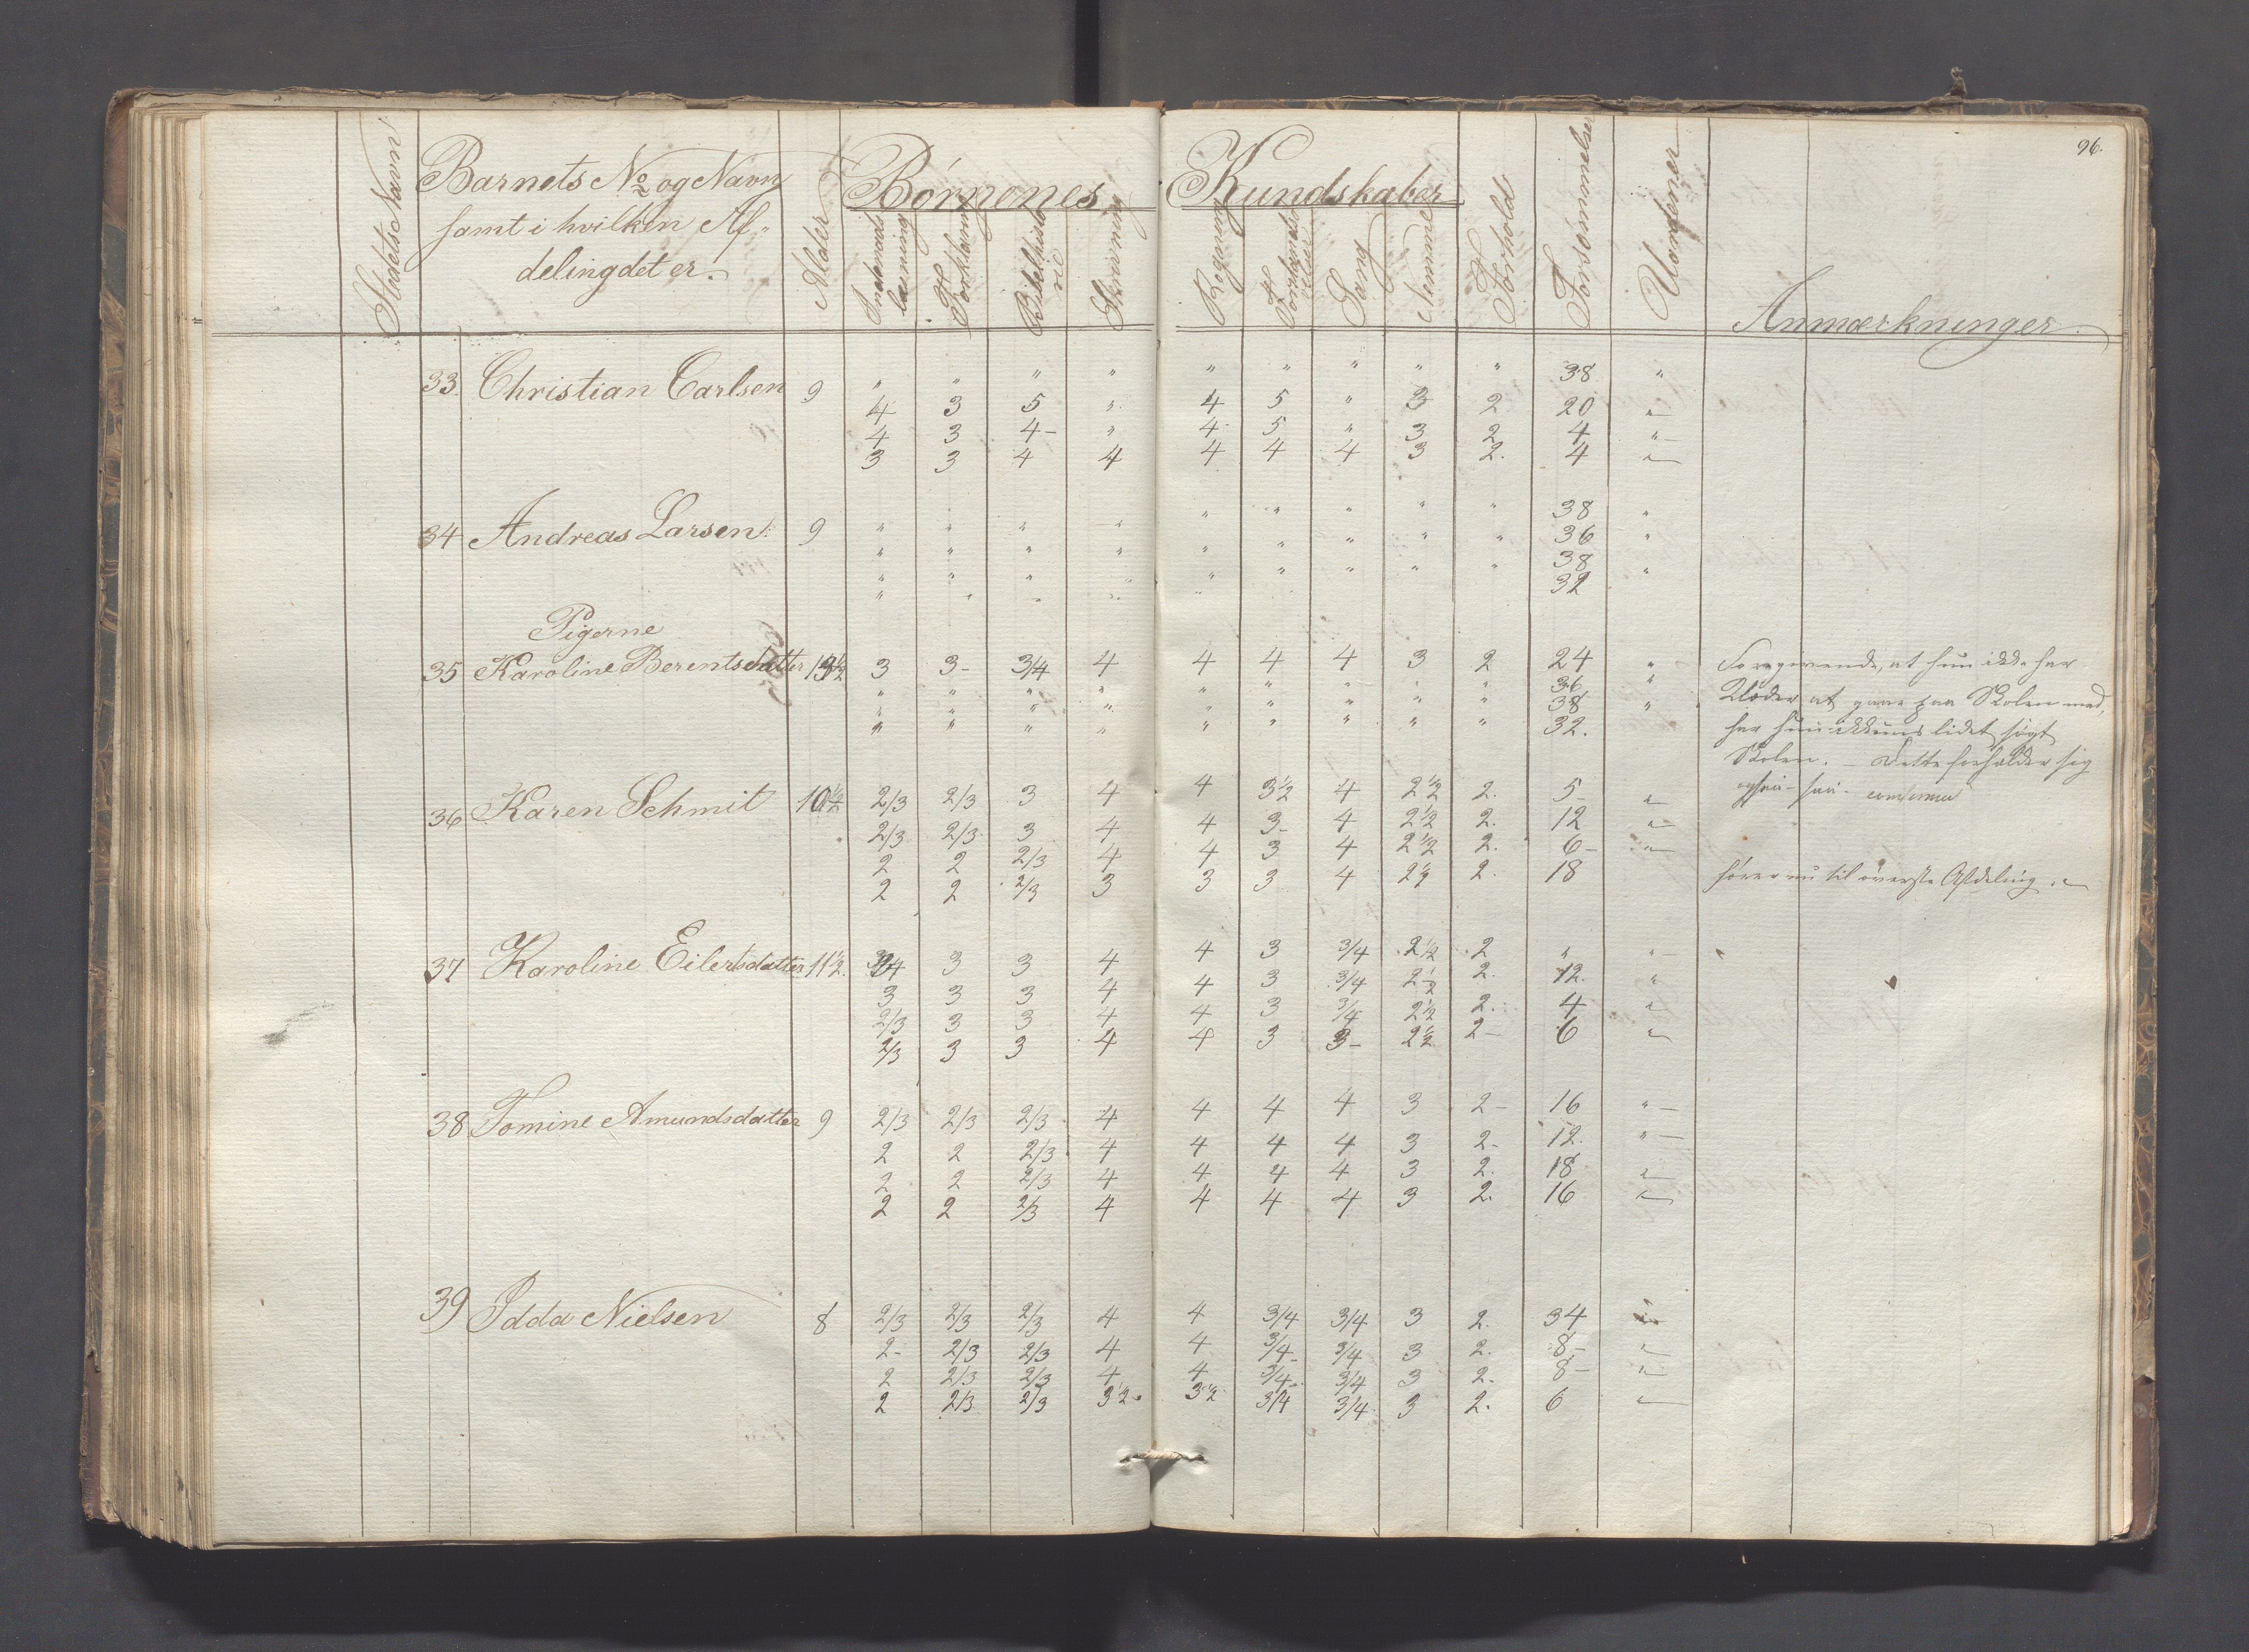 96.
Stedets Navn
Barnets No og Navn
samt i hvilken Af-
deling det er.
Alder
Børnenes Kundskaber
Indenads læsning
Forklaring
Bibelhisto rie
Skrivning
Regning
Sang
Nemme
Forhold
Forsømmelser
Udeblivelser
Anmærkninger
33. Christian Carlsen 9 " " " " " " " " " 38 "
4 3 5 " 4 5 " 3 2 20 "
4 3 4- " 4 5 " 3 2 4 "
3 3 4 4 4 4 4 3 2. 4 "
34 Andreas Larsen 9 " " " " " " " " " 38 "
" " " " " " " " " 36 "
" " " " " " " " " 38 "
" " " " " 32
Pigerne
35 Karoline Berentsdatter 13½ 3 3- 3/4 4 4 4 4 3 2 24 " Foregivende, at hun ikke har
" " " " " " " " " 36 " Klæder at gaae paa Skolen med,
" " " " " " " " " 38 " har hun ikkuns lidet søgt
" " " " " " " " " 32. Skolen. - Dette forholder sig
ogsaa saa.
36 Karen Schmit 10½ 2/3 2/3 3 4 4 3½ 4 2½ 2. 5 "
2/3 2/3 3 4 4 3- 4 2½ 2. 12 "
2 2 2/3 4 4 3 4 2½ 2. 6- "
2 2 2/3 3 3 3 4 2½ 2. 18 hører nu til øverste Afdeling.
37 Karoline Eilertsdatter 11½. 3/4 3 3 4 4 3 3/4 2½ 2 " "
3 3 3 4 4 3 3/4 2½ 2. 12. "
2/3 3 3 4 4 3 3/4 2½ 2. 4 "
2/3 3 3 4 4 3 3- 2½ 2- 6 "
38 Tomine Amundsdatter 9 2/3 2/3 2/3 4 4 4 4 3 2- 16 "
2 2 2/3 4 4 4 4 3 2- 12. "
2 2 2/3 4 4 4 4 3 2. 18 "
2 2 2/3 4 4 4 4 3 2. 16 "
39 Idda Nielsen 8 2/3 2/3 2/3 4 4 3/4 3/4 3 2. 34 "
2- 2/3 2/3 4 4 3/4 3/4 3 2. 8- "
2 2/3 2/3 4 4 3/4 3/4 3 2. 8- "
2 2/3 2/3 3½ 3½ 3/4 3/4 3 2. 6 "